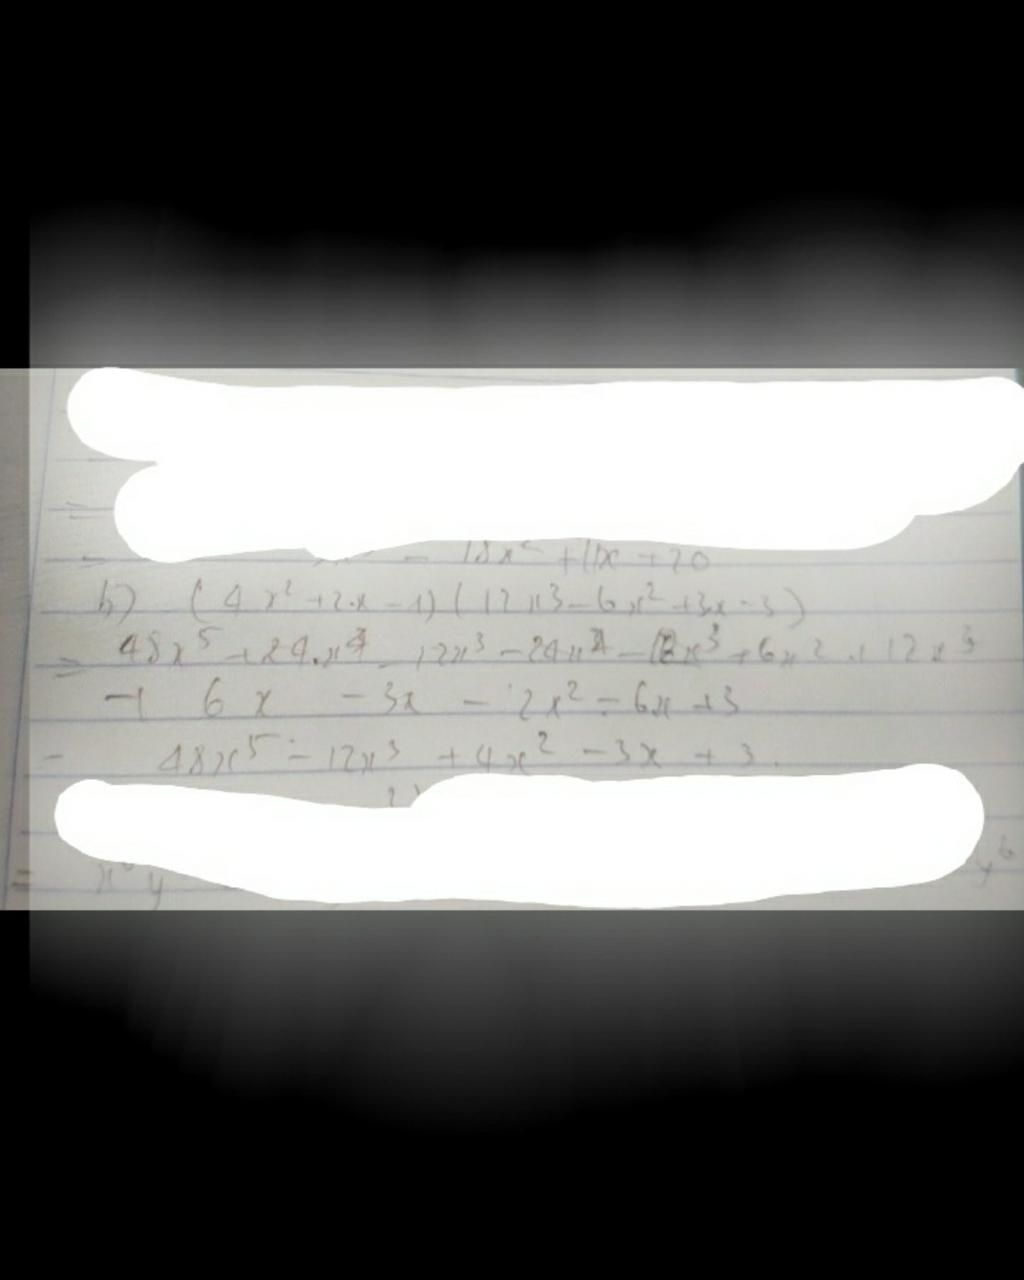 - 18x² + 11x + 20
b) (4x² + 2x - 1)(12x³ - 6x² + 3x - 3)
= 48x⁵ + 24.x⁴ - 12x³ - 24x⁴ - 12x³ + 6x² + 12x³
+ 6x - 3x - 12x² - 6x + 3
- 48x⁵ - 12x³ + 4x² - 3x + 3.
= x y y⁶